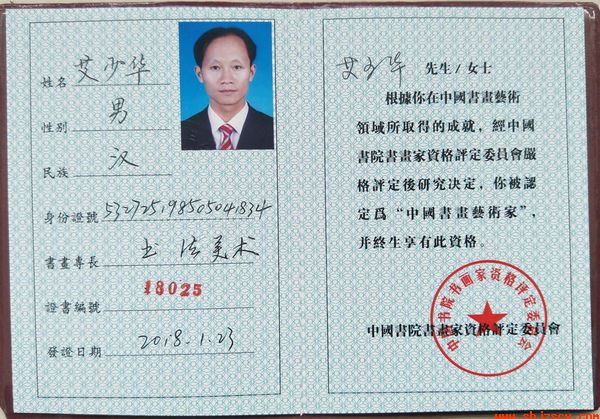 姓名 艾少华
性别 男
民族 汉
身份證號 532725198505041834
書畫專長 书法美术
證書編號 18025
發證日期 2018.1.23
艾少华 先生/女士
根據你在中國書畫藝術
領域所取得的成就，經中國
書院書畫家資格評定委員會嚴
格評定後研究决定，你被認
定爲“中國書畫藝術家”，
并終生享有此資格。
中國書院書畫家資格評定委員會
中国书院书画家资格评定委员会